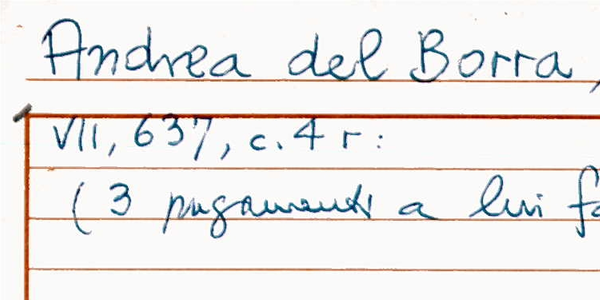 Andrea del Borra,
VII, 637, c. 4 r:
(3 pagamenti a lui